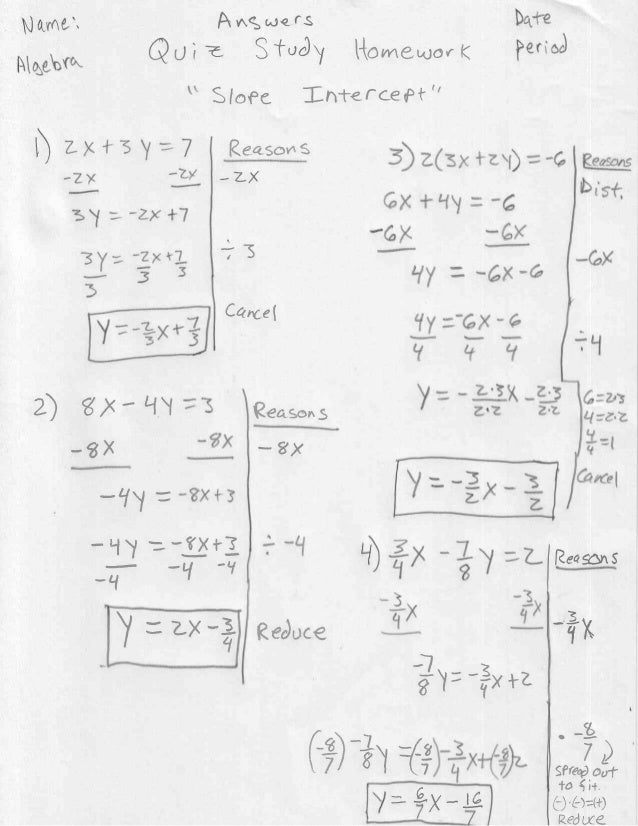 Name: Answers Date
Algebra Quiz Study Homework period
"Slope Intercept"
1) 2x+3y=7 Reasons
-2x -2x -2x
3y=-2x+7
3y/3=-2x/3+7/3 ÷3
y=-2/3x+7/3 Cancel
2) 8x-4y=3 Reasons
-8x -8x -8x
-4y=-8x+3
-4y/-4=-8x/-4+3/-4 ÷-4
y=2x-3/4 Reduce
3) 2(3x+2y)=-6 Reasons
6x+4y=-6 Dist.
-6x -6x -6x
4y=-6x-6
4y/4=-6x/4-6/4 ÷4
y=-2·3x/2·2-2·3/2·2 6=2·3
4=2·2
4/4=1
y=-3/2x-3/2 Cancel
4) 3/4x-7/8y=2 Reasons
-3/4x -3/4x -3/4x
-7/8y=-3/4x+2
(-8/7)-7/8y=(-8/7)-3/4x+(-8/7)2 ·-8/7
spread out
to
(-)·(-)=(+)
y=6/7x-16/7 Reduce